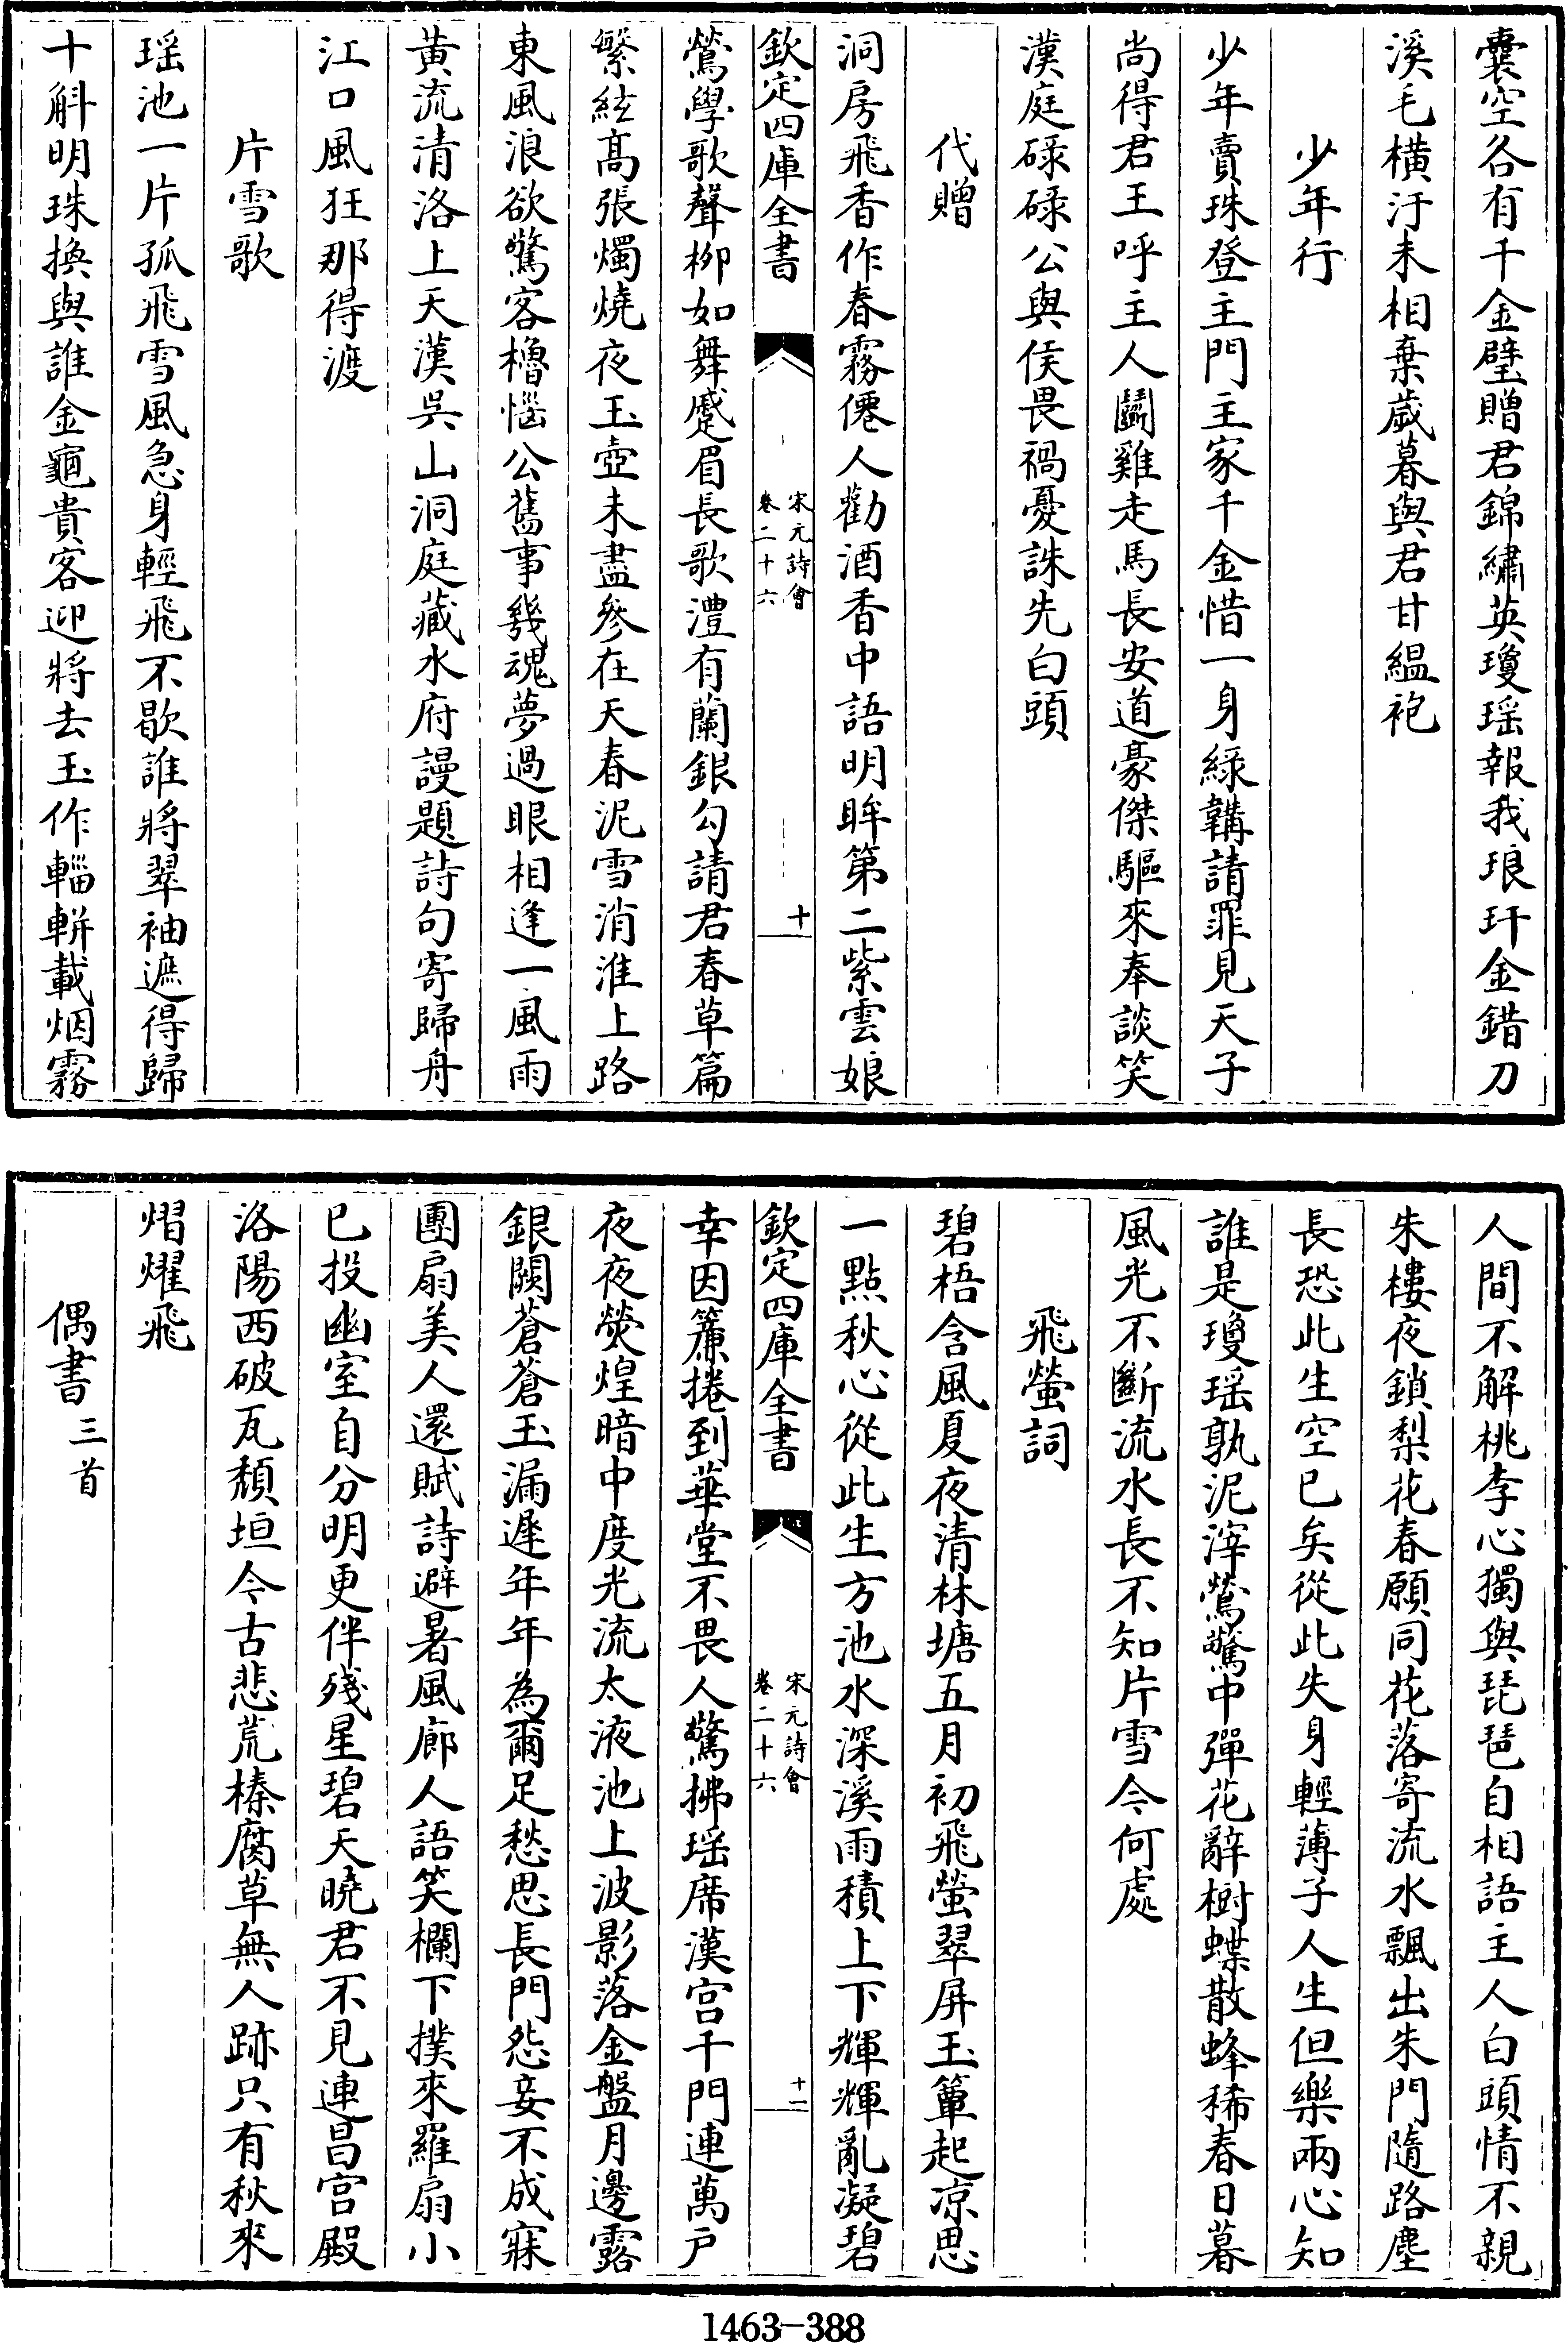 囊空各有千金璧贈君錦繡英瓊瑶報我琅玕金錯刀
溪毛橫汙未相棄歲暮與君甘緼袍
少年行
少年賣珠登主門主家千金惜一身綠鞲請罪見天子
尚得君王呼主人鬭雞走馬長安道豪傑驅來奉談笑
漢庭碌碌公與侯畏禍憂誅先白頭
代贈
洞房飛香作春霧僊人勸酒香中語明眸第二紫雲娘
欽定四庫全書
宋元詩會
卷二十六
十
鶯學歌聲柳如舞蹙眉長歌澧有蘭銀勾請君春草篇
繁絃髙張燭燒夜玉壺未盡參在天春泥雪消淮上路
東風浪欲驚客櫓惱公舊事幾魂夢過眼相逢一風雨
黄流清洛上天漢吳山洞庭藏水府謾題詩句寄歸舟
江口風狂那得渡
片雪歌
瑶池一片孤飛雪風急身輕飛不歇誰將翠袖遮得歸
十斛明珠換與誰金龜貴客迎將去玉作輜軿載烟霧
人間不解桃李心獨與琵琶自相語主人白頭情不親
朱樓夜鎖梨花春願同花落寄流水飄出朱門隨路塵
長恐此生空已矣從此失身輕薄子人生但樂兩心知
誰是瓊瑶孰泥滓鶯驚中彈花辭樹蝶散蜂稀春日暮
風光不斷流水長不知片雪今何處
飛螢詞
碧梧含風夏夜清林塘五月初飛螢翠屏玉簟起凉思
一點秋心從此生方池水深溪雨積上下輝輝亂凝碧
欽定四庫全書
宋元詩會
卷二十六
十一
幸因簾捲到華堂不畏人驚拂瑶席漢宫千門連萬户
夜夜熒煌暗中度光流太液池上波影落金盤月邊露
銀闕蒼蒼玉漏遲年年為爾足愁思長門怨妾不成寐
團扇美人還賦詩避暑風廊人語笑欄下撲來羅扇小
已投幽室自分明更伴殘星碧天曉君不見連昌宫殿
洛陽西破瓦頽垣今古悲荒榛腐草無人跡只有秋來
熠燿飛
偶書三首
1463-388